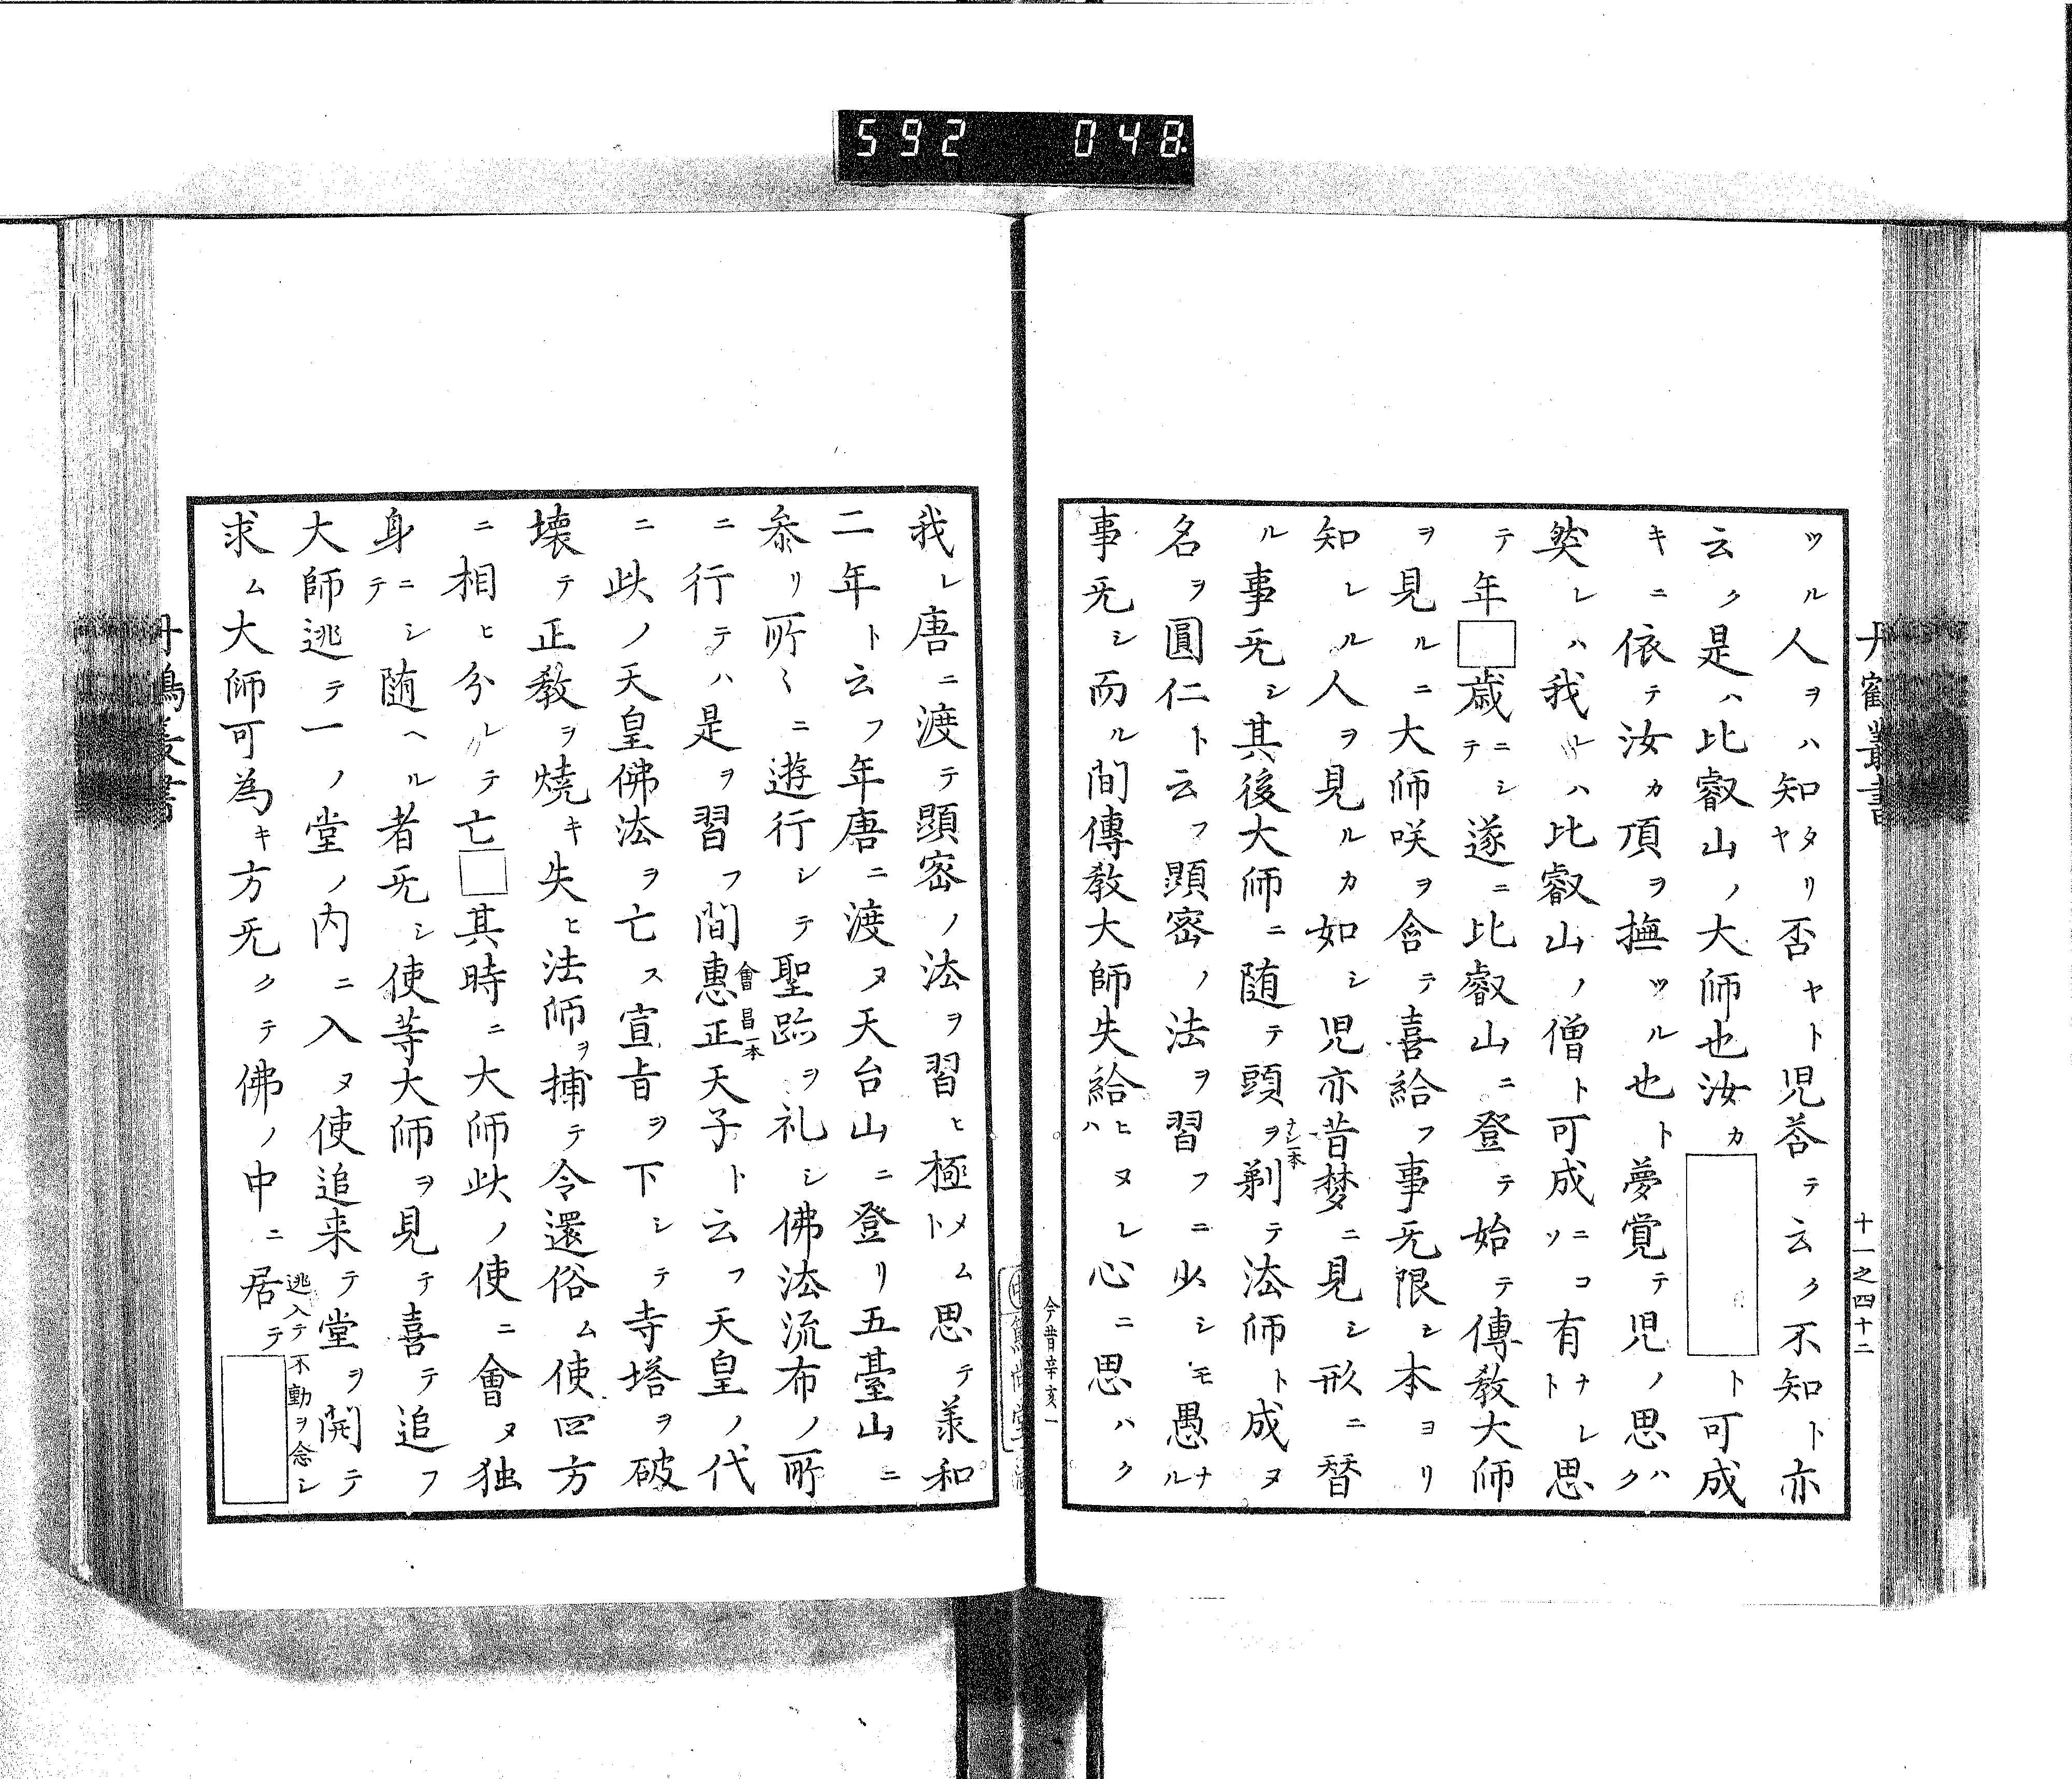 592 048
丹鶴叢書
十一之四十二
ツル人ヲハ知タリヤ否ヤト児荅テ云ク不知ト亦
云ク是ハ比叡山ノ大師也汝カ□ト可成
キニ依テ汝カ頂ヲ撫ツル也ト夢覚テ児ノ思ハク
然レハ我レハ比叡山ノ僧ト可成ニコソ有ナレト思
テ年□歳ニシテ遂ニ比叡山ニ登テ始テ傳教大師
ヲ見ルニ大師咲ヲ含テ喜給フ事无限シ本ヨリ
知レル人ヲ見ルカ如シ児亦昔夢ニ見シ形ニ替
ル事无シ其後大師ニ随テ頭ヲナシ一本剃テ法師ト成ヌ
名ヲ圓仁ト云フ顕密ノ法ヲ習フニ少シモ愚ナル
事无シ而ル間傳教大師失給ヒヌレハ心ニ思ハク
今昔辛亥一
我レ唐ニ渡テ顕密ノ法ヲ習ヒ極メムト思テ羕和
二年ト云フ年唐ニ渡ヌ天台山ニ登リ五臺山ニ
参リ所〻ニ遊行シテ聖跡ヲ礼シ佛法流布ノ所
ニ行テハ是ヲ習フ間惠正會昌一本天子ト云フ天皇ノ代
ニ此ノ天皇佛法ヲ亡ス宣旨ヲ下シテ寺塔ヲ破
壊テ正教ヲ焼キ失ヒ法師ヲ捕テ令還俗ム使四方
ニ相ヒ分レテ亡□其時ニ大師此ノ使ニ會ヌ独
身ニシテ随ヘル者无シ使等大師ヲ見テ喜テ追フ
大師逃テ一ノ堂ノ内ニ入ヌ使追来テ堂ヲ開テ
求ム大師可為キ方无クテ佛ノ中ニ逃入テ居テ□不動ヲ念シ
丹鶴叢書